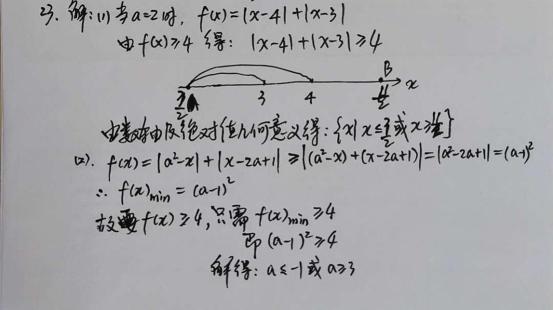 23. 解:(1) 当a=2时, f(x)=|x-4|+|x-3|
由f(x)≥4 得: |x-4|+|x-3|≥4
A B
3/2 3 4 11/2 x
由数轴及绝对值几何意义得: {x|x≤3/2或x≥11/2}
(2). f(x)=|a²-x|+|x-2a+1|≥|(a²-x)+(x-2a+1)|=|a²-2a+1|=(a-1)²
∴ f(x)min=(a-1)²
故要f(x)≥4, 只需f(x)min≥4
即(a-1)²≥4
解得: a≤-1或a≥3